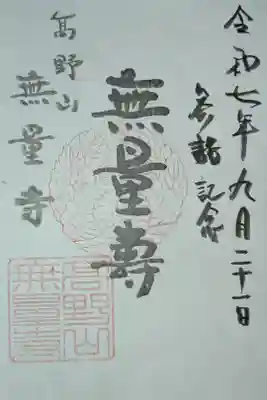 令和七年九月二十一日
参詣記念
無量壽
髙野山
無量寺
高野山
無量